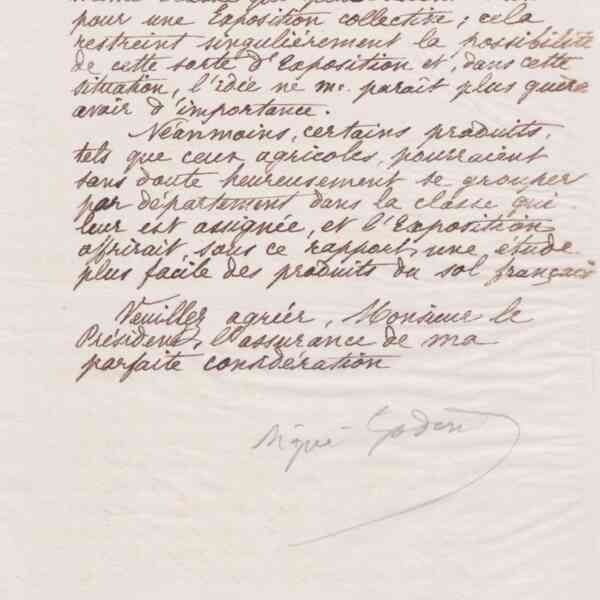 pour une Exposition collective ; cela
restreint singulièrement la possibilité
de cette sorte d'Exposition et, dans cette
situation, l'idée ne me paraît plus guère
avoir d'importance.
Néanmoins, certains produits,
tels que ceux agricoles, pourraient
sans doute heureusement se grouper
par département dans la classe qui
leur est assignée, et l'Exposition
offrirait, sous ce rapport, une étude
plus facile des produits du sol français
Veuillez agréer, Monsieur le
Président, l'assurance de ma
parfaite considération
Signé Godin